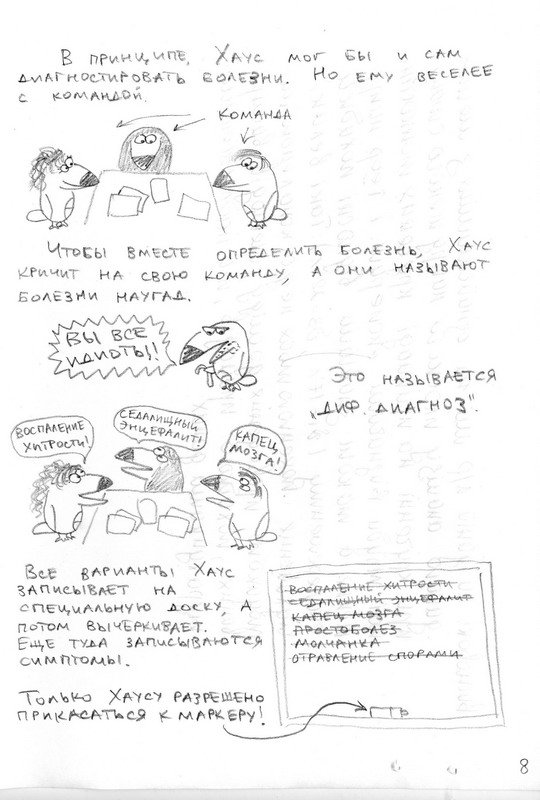 В принципе, Хаус мог бы и сам
диагностировать болезни. Но ему веселее
с командой.
команда
Чтобы вместе определить болезнь, Хаус
кричит на свою команду, а они называют
болезни наугад.
ВЫ ВСЕ
ИДИОТЫ!!
Это называется
„диф. диагноз".
ВОСПАЛЕНИЕ
ХИТРОСТИ!
СЕДАЛИЩНЫЙ
ЭНЦЕФАЛИТ!
КАПЕЦ
МОЗГА!
Все варианты Хаус
записывает на
специальную доску, а
потом вычеркивает.
Еще туда записываются
симптомы.
Только Хаусу разрешено
прикасаться к маркеру!
ВОСПАЛЕНИЕ ХИТРОСТИ
СЕДАЛИЩНЫЙ ЭНЦЕФАЛИТ
КАПЕЦ МОЗГА
ПРОСТОБОЛЕЗ
МОЛЧАНКА
ОТРАВЛЕНИЕ СПОРАМИ
8